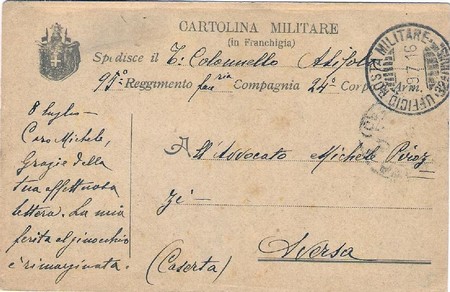 CARTOLINA MILITARE
(in Franchigia)
Spedisce il T. Colonnello
95° Reggimento fanria Compagnia 24° Corpo Arm.
UFFICIO POSTA MILITARE
9.7.16
8 luglio –
Caro Michele,
Grazie della
tua affettuosa
lettera. La mia
ferita al ginocchio
è rimarginata.
All'Avvocato Michele Piroz
zi –
Aversa
(Caserta)